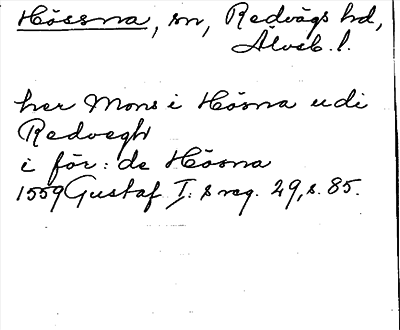 Hössna, sn, Redvägs hd,
Älvsb. l.
her Mons i Hösna udi
Redvegh
i för: de Hösna
1559 Gustaf I:s reg. 29, s. 85.